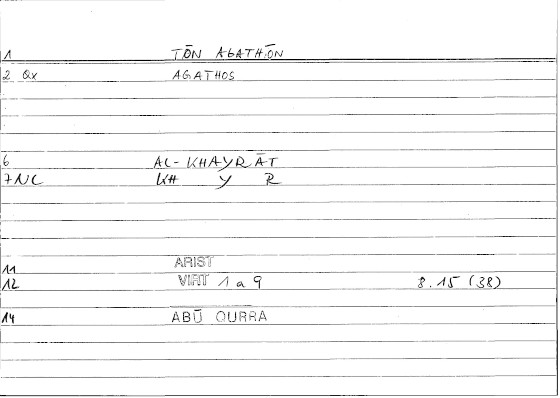 1 TŌN AGATHŌN
2 Qx AGATHOS
6 AL-KHAYRĀT
7NC KH Y R
11 ARIST
12 VIRT 1 a 9 8.15 (38)
14 ABŪ QURRA